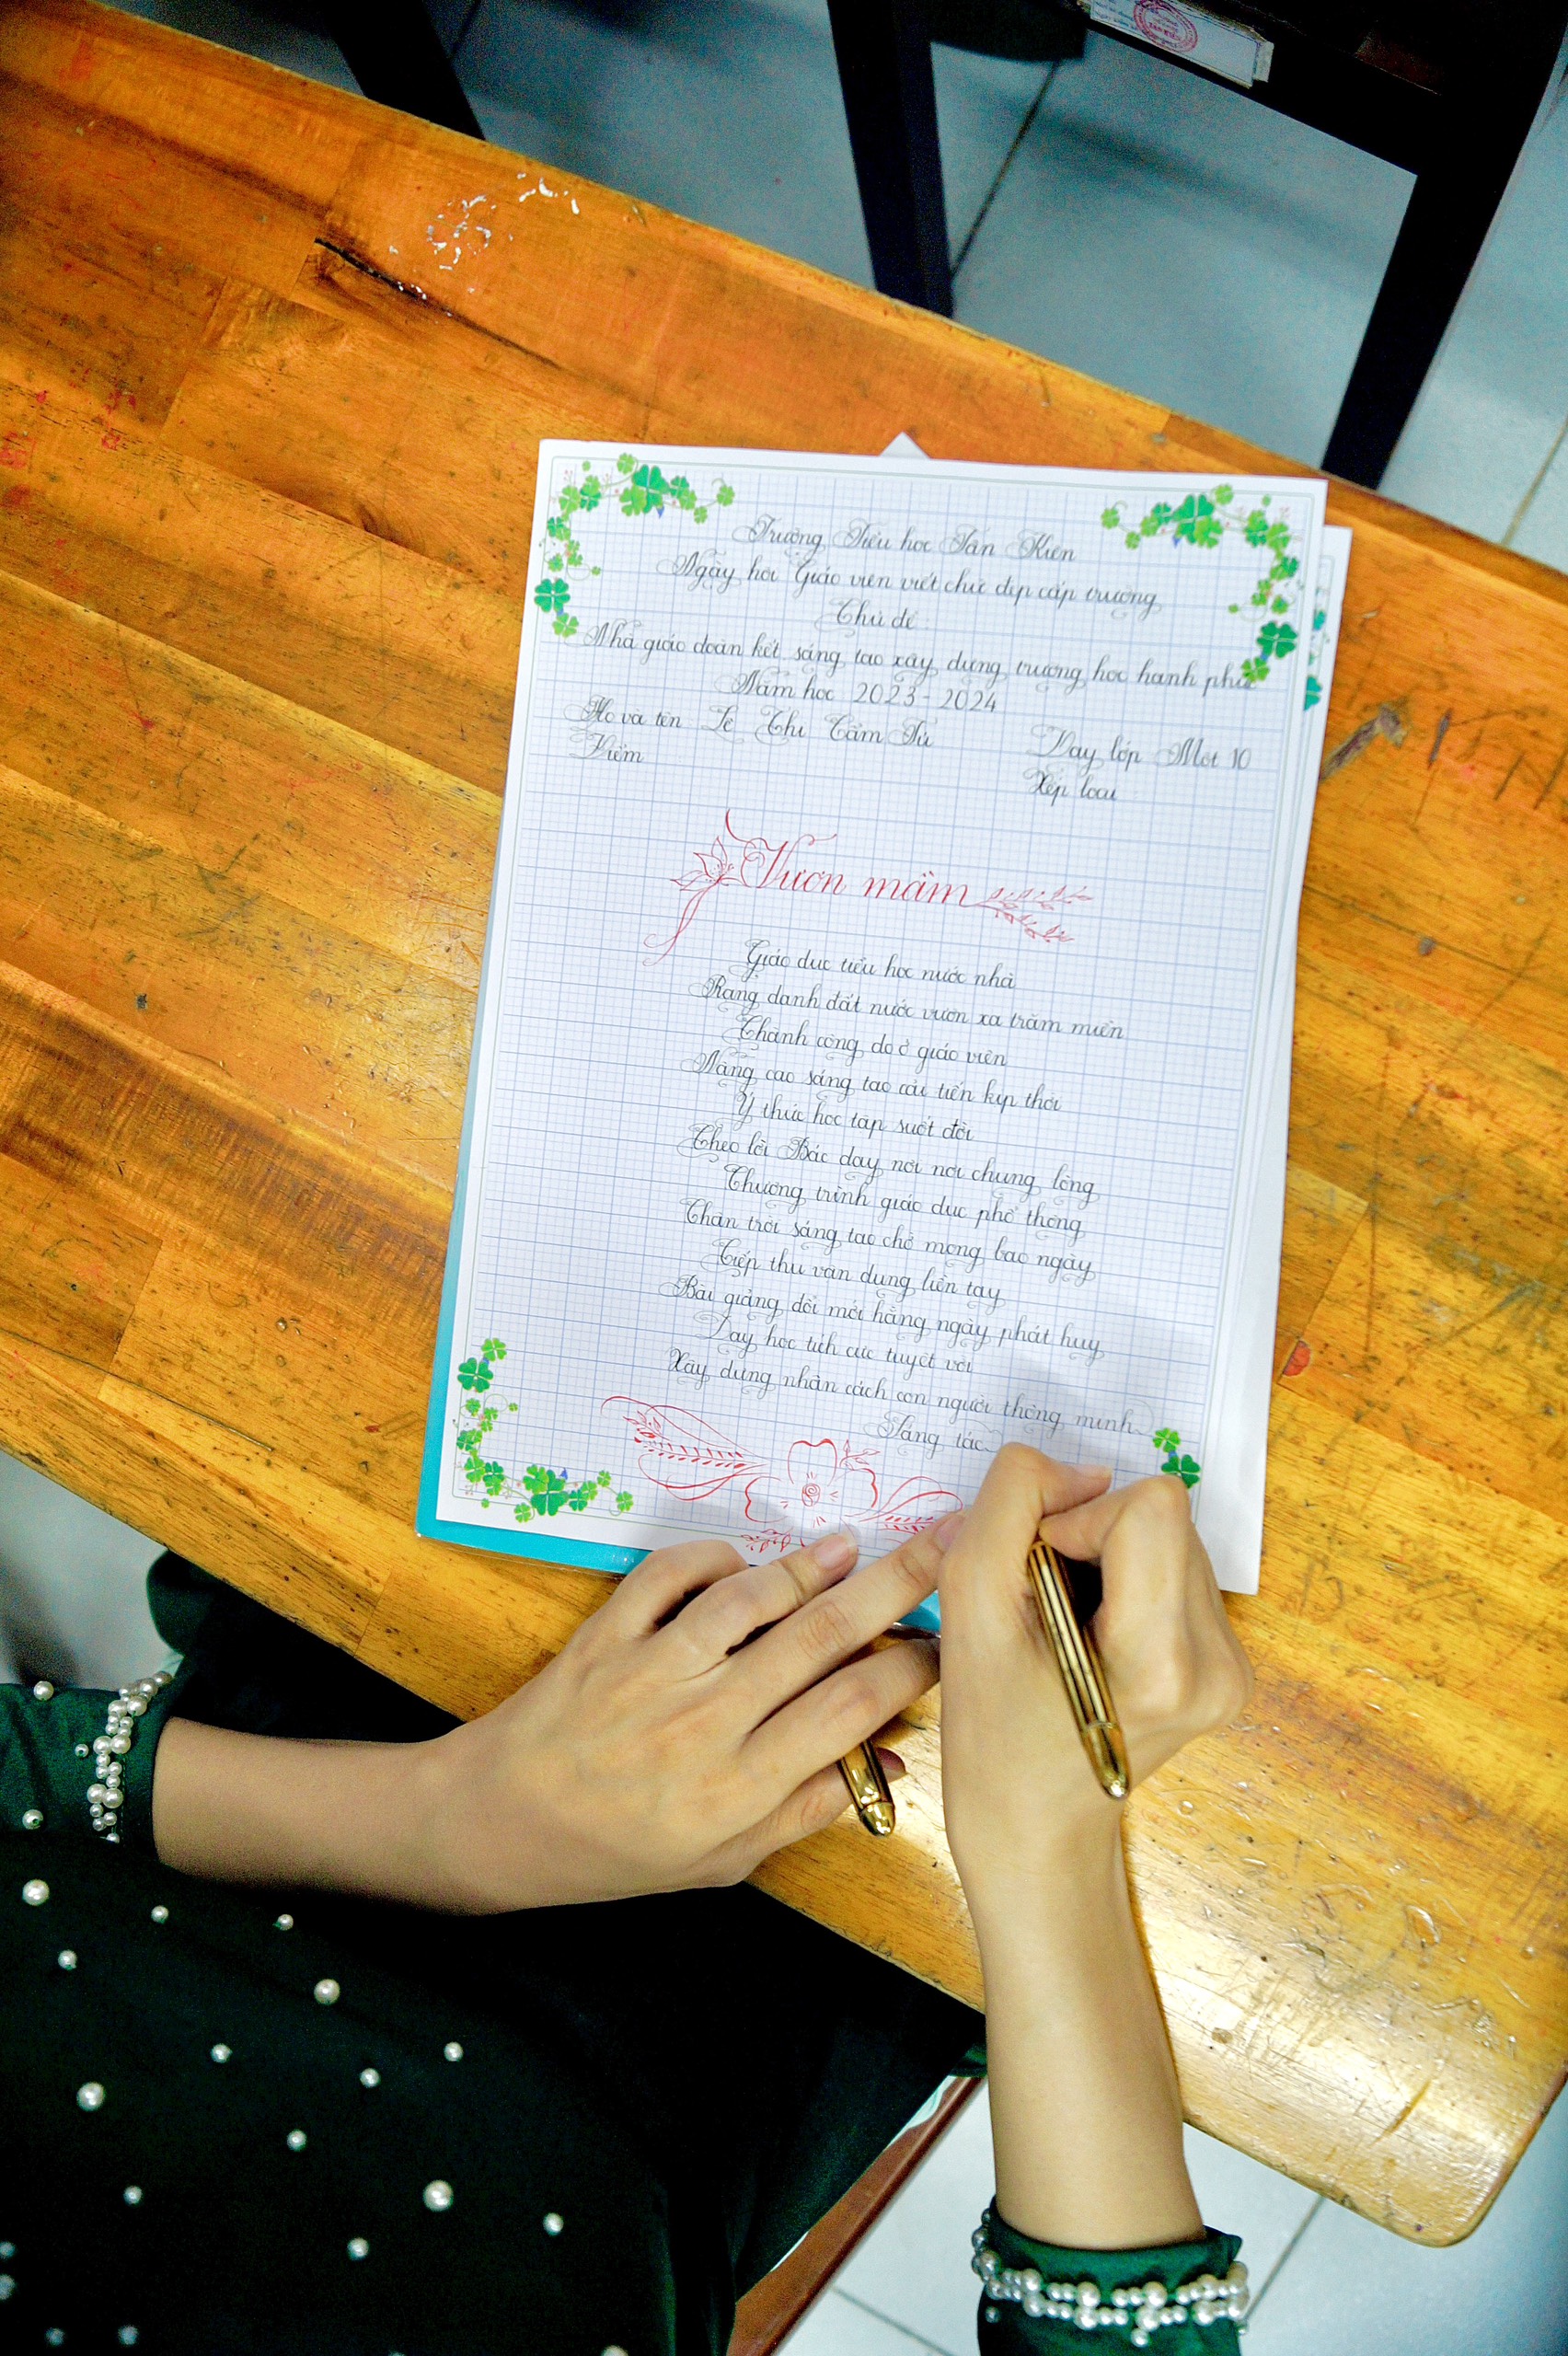 Trường Tiểu học Tân Kiên
Ngày hội Giáo viên viết chữ đẹp cấp trường
Chủ đề:
Nhà giáo đoàn kết sáng tạo xây dựng trường học hạnh phúc
Năm học 2023-2024
Họ và tên: Lê Thị Cẩm Tú Dạy lớp Một 10
Điểm Xếp loại
Vươn mầm
Giáo dục tiểu học nước nhà
Rạng danh đất nước vươn xa trăm miền
Thành công do ở giáo viên
Nâng cao sáng tạo cải tiến kịp thời
Ý thức học tập suốt đời
Theo lời Bác dạy nơi nơi chung lòng
Chương trình giáo dục phổ thông
Chân trời sáng tạo chờ mong bao ngày
Tiếp thu vận dụng liền tay
Bài giảng đổi mới hằng ngày phát huy
Dạy học tích cực tuyệt vời
Xây dựng nhân cách con người thông minh
Sáng tác